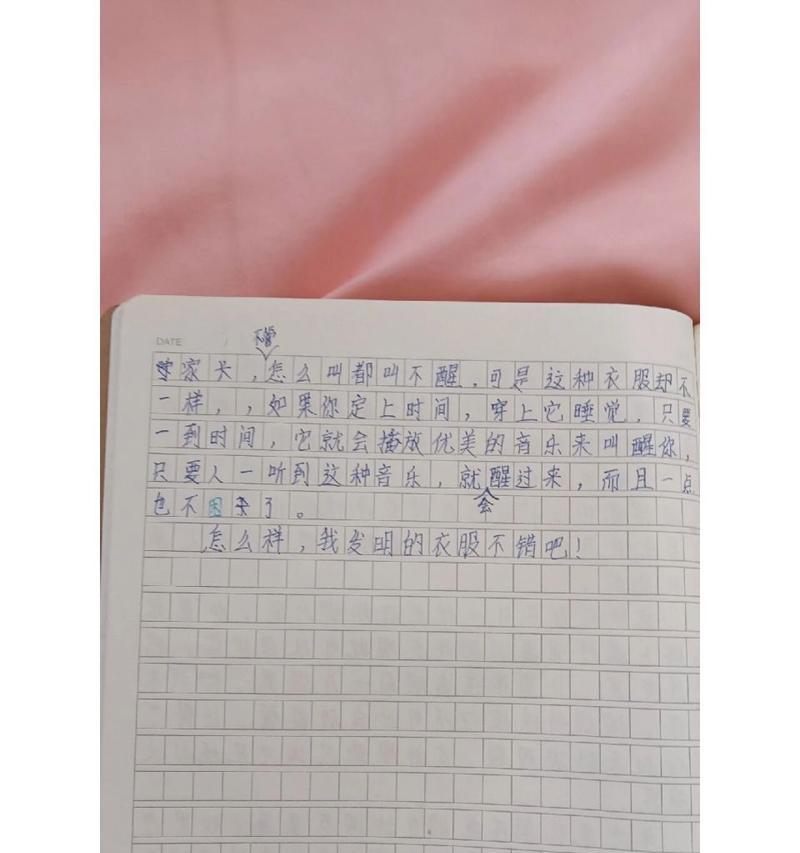 DATE
不管
家长，怎么叫都叫不醒，可是这种衣服却不
一样，，如果你定上时间，穿上它睡觉，只要
一到时间，它就会播放优美的音乐来叫醒你，
只要人一听到这种音乐，就醒过来，而且一点
会
也不困了。
怎么样，我发明的衣服不错吧！